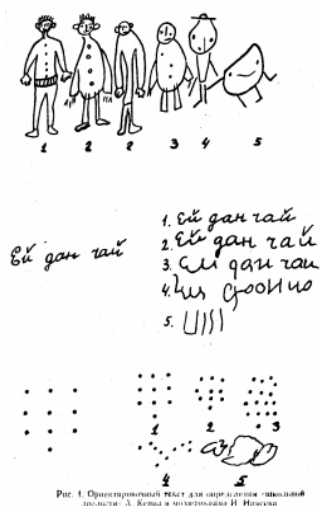 1 2 2 3 4 5
Ей дан чай
1. Ей дан чай
2. Ей дан чай
3. дан чаи
4.
5.
1 2 3
4 5
Рис. 1. Ориентировочный текст для определения школьной
зрелости А. Керна в модификации И.